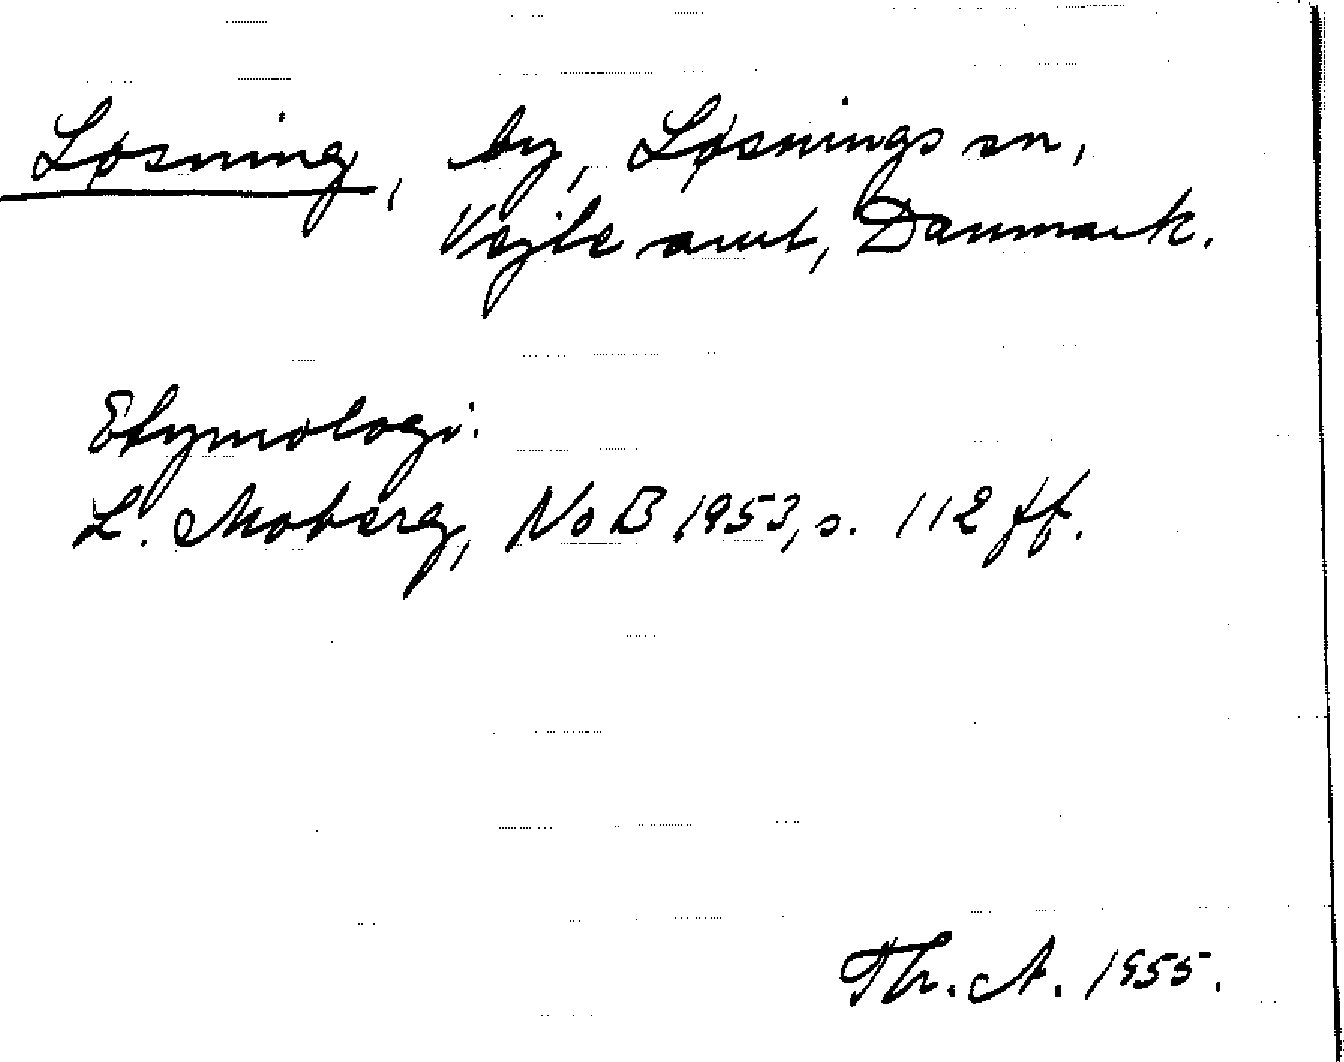 Løsning, by, Løsnings sn,
Vejle amt, Danmark.
Etymologi.
L. Moberg, NoB 1953, s. 112 ff.
Th. A. 1955.